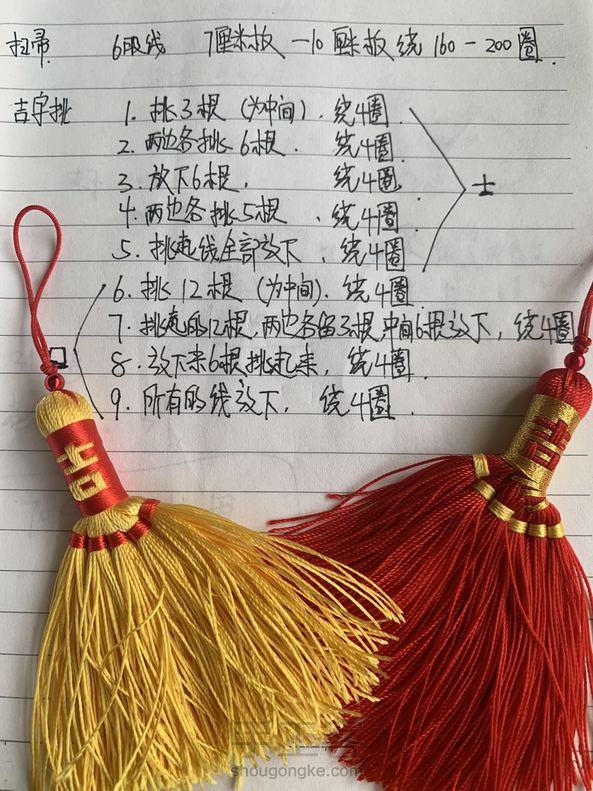 扫帚 6股线 7厘米板 — 10厘米板 绕 160 - 200圈.
吉字挑 1. 挑3根 (为中间). 绕4圈
2. 两边各挑6根. 绕4圈
3. 放下6根, 绕4圈
4. 两边各挑5根 、绕4圈
士
5. 挑起线全部放下、绕4圈
6. 挑12根 (为中间). 绕4圈
7. 挑起的12根, 两边各留3根中间6根放下, 绕4圈
口
8. 放下来6根挑起来, 绕4圈.
9. 所有的线放下, 绕4圈.
吉
吉
shougongke.com